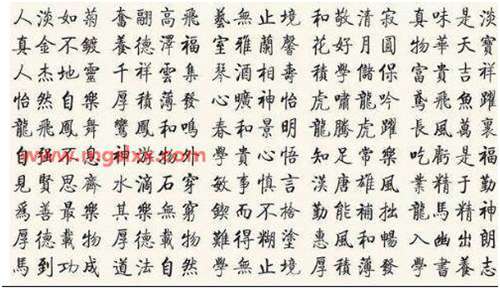 人淡如菊 奮翮高飛 藝無止境 和敬清寂 真味是淡
真金不鍍 養德澤福 室雅蘭馨 花好月圓 物華天寶
人杰地靈 千祥雲集 琴酒相壽 積學儲保 富貴吉祥
怡然自樂 厚積薄發 心曠神怡 虎嘯龍吟 鳶飛魚躍
龍飛鳳舞 鸞鳳和鳴 春和景明 龍騰虎躍 長風萬裏
自強不息 神遊物外 學貴心悟 知足常樂 吃虧是福
見賢思齊 水滴石穿 敏事慎言 漢唐雄風 業精于勤
爲善最樂 其樂無窮 鍥而不捨 勤能補拙 龍馬精神
厚德載物 厚德載物 難得糊塗 惠風和暢 入幽出朗
馬到功成 道法自然 學無止境 厚積薄發 學書養志